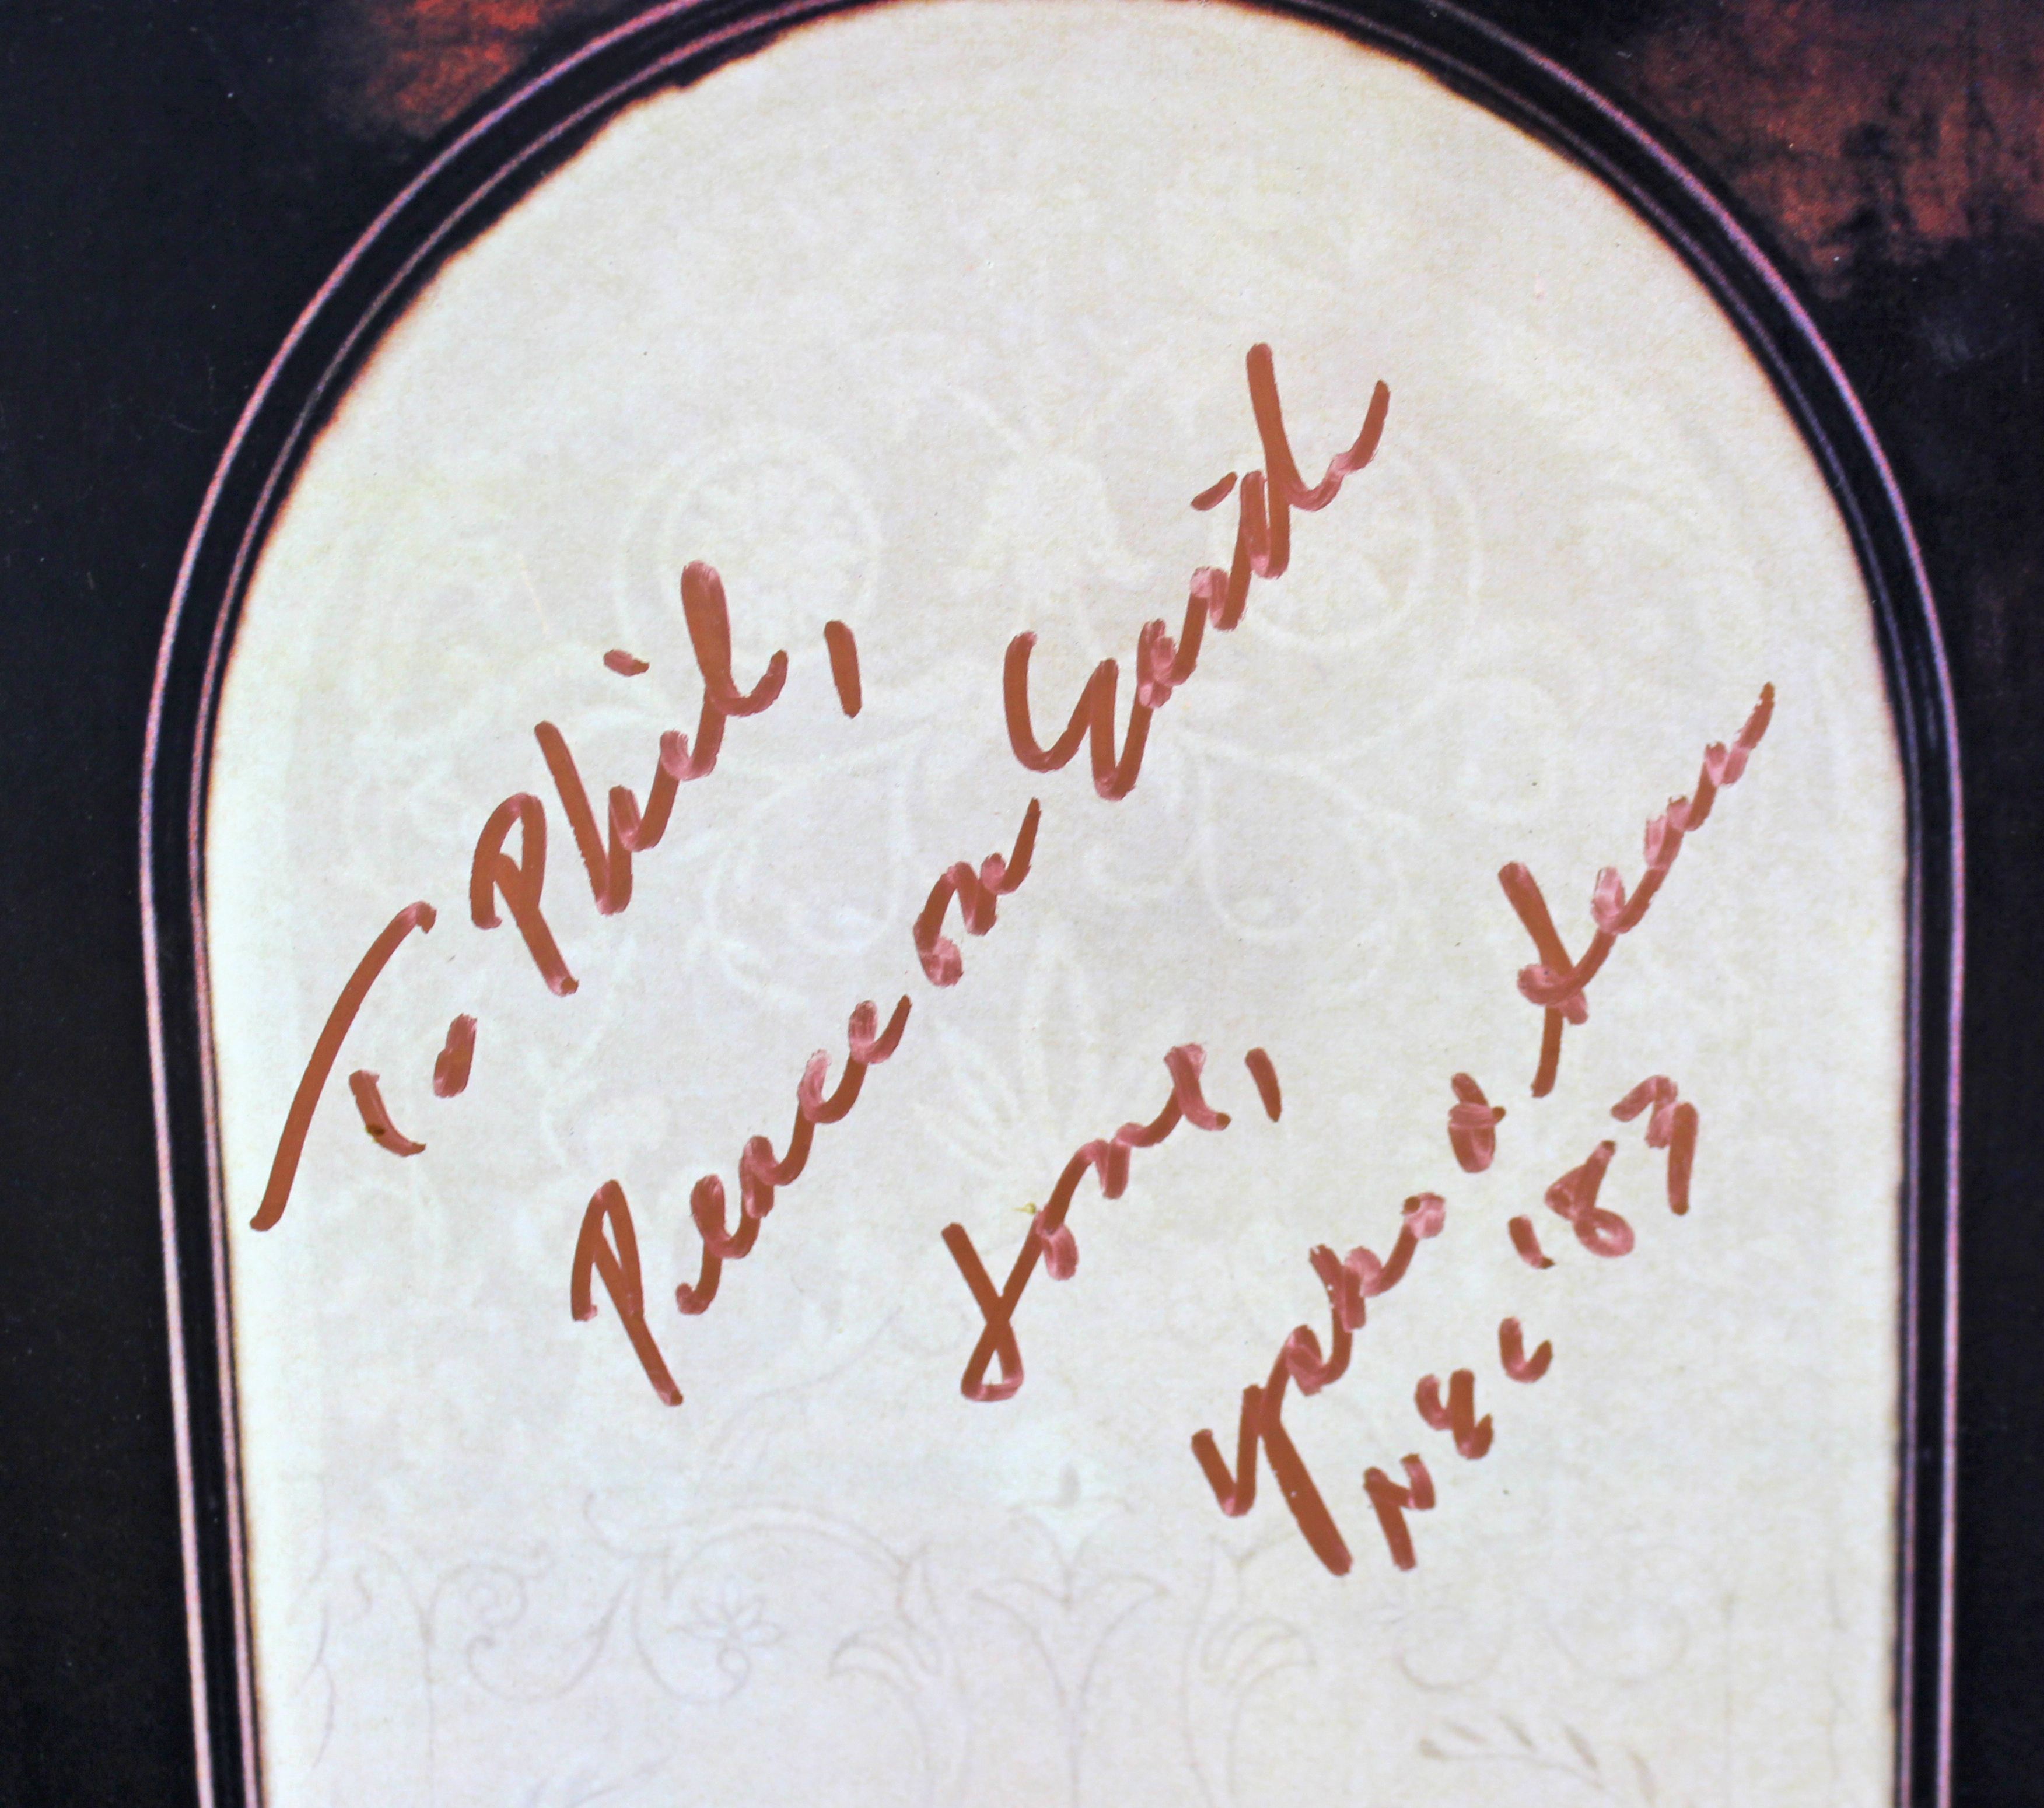 To Phil,
Peace on Earth
love,
Yoko & Sean
N.Y.C '83